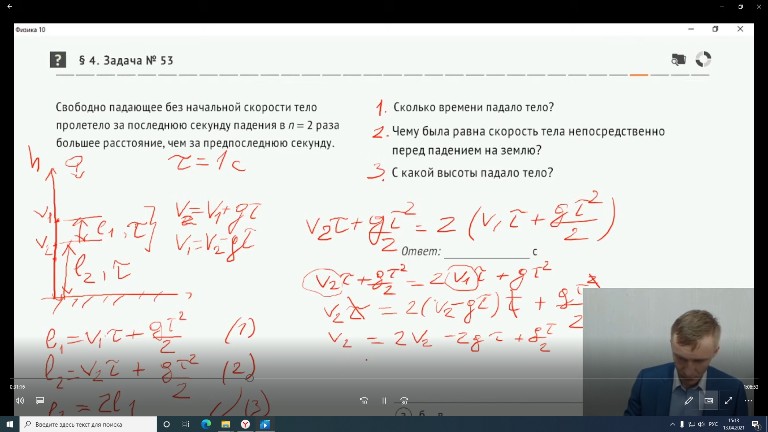 Физика 10
§ 4. Задача № 53
Свободно падающее без начальной скорости тело
пролетело за последнюю секунду падения в n = 2 раза
большее расстояние, чем за предпоследнюю секунду.
1. Сколько времени падало тело?
2. Чему была равна скорость тела непосредственно
перед падением на землю?
3. С какой высоты падало тело?
h
τ = 1 с
v₁
v₂
ℓ₁, τ
ℓ₂, τ
v₂ = v₁ + gτ
v₁ = v₂ - gτ
v₂τ + gτ²/2 = 2 (v₁τ + gτ²/2)
Ответ: с
v₂τ + gτ²/2 = 2v₁τ + gτ²
v₂τ = 2(v₂ - gτ)τ + gτ²/2
v₂ = 2v₂ - 2gτ + gτ/2
ℓ₁ = v₁τ + gτ²/2 (1)
ℓ₂ = v₂τ + gτ²/2 (2)
ℓ₂ = 2ℓ₁ (3)
Введите здесь текст для поиска
РУС
13.04.2021